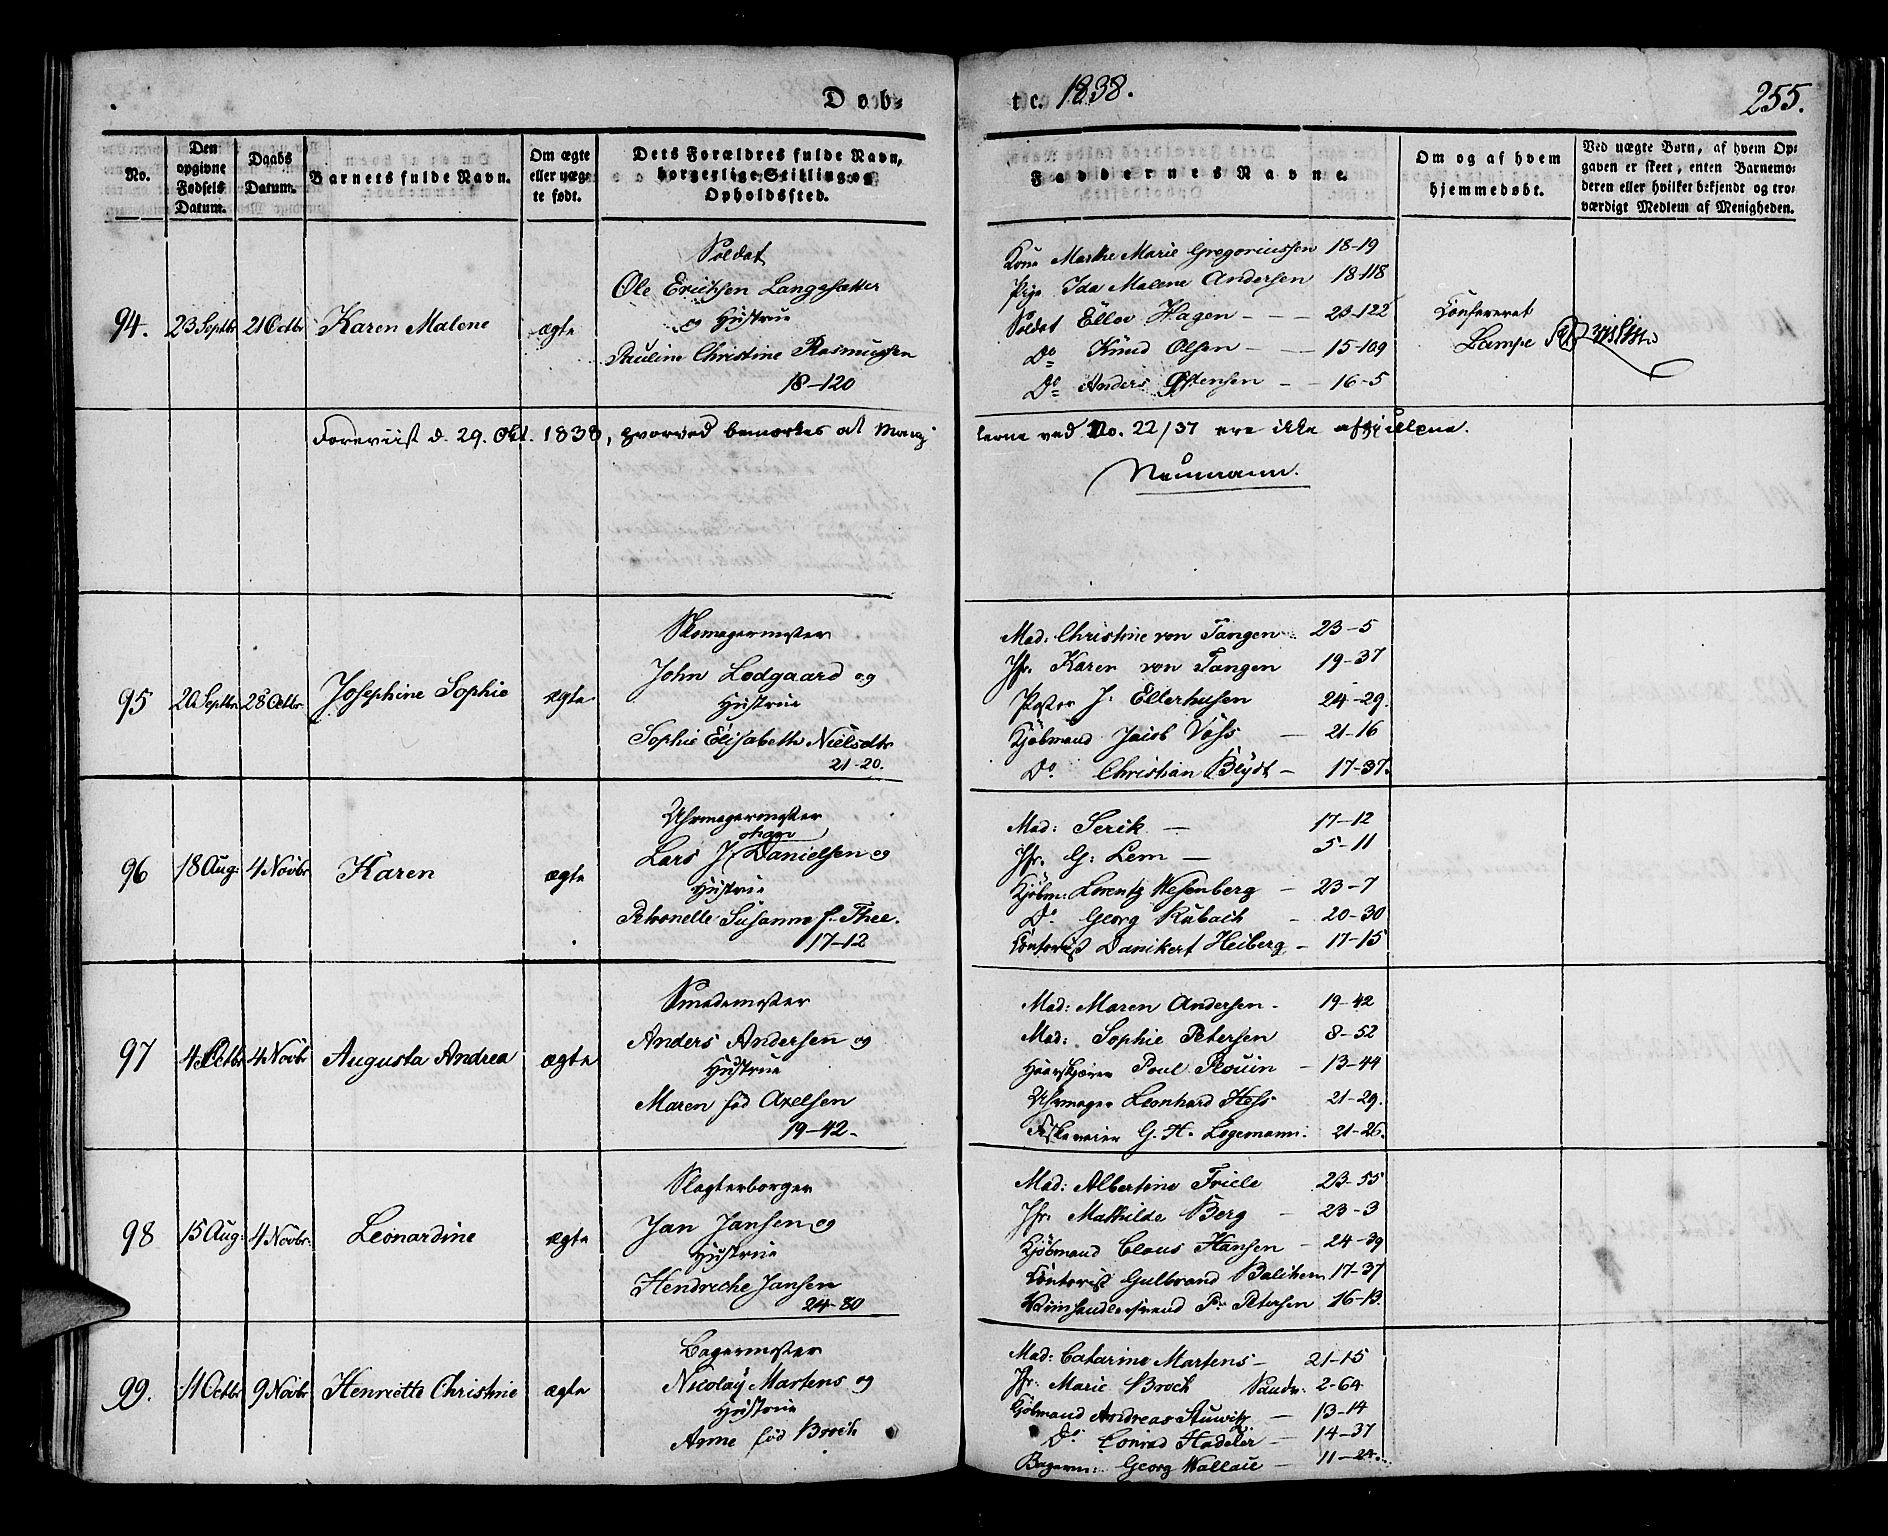 Døb-
te. 1838.
255.
No.
Den opgivne Fødsels Datum.
Daabs Datum.
Barnets fulde Navn.
Om ægte eller uægte født.
Dets Forældres fulde Navn, borgerlige Stilling og Opholdssted.
Faddernes Navne.
Om og af hvem hjemmedøbt.
Ved uægte Børn, af hvem Opgaven er skeet, enten Barnemoderen eller hvilket bekjendt og troværdigt Medlem af Menigheden.
94. 23 Septbr 21 Octbr Karen Malene ægte
Soldat
Ole Erichsen Langesætter
og Hustrue
Pauline Christine Rasmussen
18-120
Kone Marthe Marie Gregoriussen 18-19
Pige Ida Malene Andersen 18-118
Soldat Ellev Hagen - - 23-122
Do Knud Olsen - - 15-109
Do Anders Østensen - - 16-5
Confereret
Lampe
Foreviist d. 29. Okt. 1838, hvorved bemærkes at Mang-
lerne ved No. 22/37 ere ikke afhjulpne.
Neumann.
95 20 Septbr 28 Octbr Josephine Sophie ægte
Skomagermester
John Lodgaard og
Hustrue
Sophie Elisabeth Nielsdtr
21-20.
Mad: Christine von Tangen 23-5
Jfr. Karen von Tangen 19-37
J. Ellerhusen 24-29.
Kjøbmand Jacob Voss - 21-16
Do Christian Beyst - 17-37.
96 18 Aug: 4 Novbr Karen ægte
Uhrmagermester
ohan
Lars J. Danielsen og
Hustrue
Petronelle Susanne f. Thee.
17-12
Mad: Serik - 17-12
Jfr. G: Lem - 5-11
Kjøbm: Lorentz Wesenberg - 23-7
Do Georg Rubach - 20-30
Contorist Danikert Heiberg - 17-15
97 4 Octbr 4 Novbr Augusta Andrea ægte
Smedemester
Anders Andersen og
Hustrue
Maren fød Axelsen
19-42-
Mad: Maren Andersen - 19-42
Mad: Sophie Petersen 8-52
Poul Plouin - 13-44
Uhrmager Leonhard Hess 21-29.
G. H. Logemann. 21-26.
98 15 Aug: 4 Novbr: Leonardine ægte
Slagterborger
Jan Jansen og
Hustrue
Hendriche Jansen
24-80
Mad: Albertine Friele 23-55
Jfr. Mathilde Berg - 23-3
Kjøbmand Claus Hansen - 24-39
Contorist Gulbrand Balchen 17-37
P. Petersen 16-13.
99. 11 Octbr 9 Novbr Henriette Christine ægte
Bagermester
Nicolay Martens og
Hustrue
Anne fød Broch
Mad: Catarine Martens - 21-15
Jfr. Marie Broch Sandv: 2-64
Kjøbmand Andreas Stuwitz - 13-14
Do Conrad Hadeler - 14-37
Bagerm: Georg Wallace - 11-24.